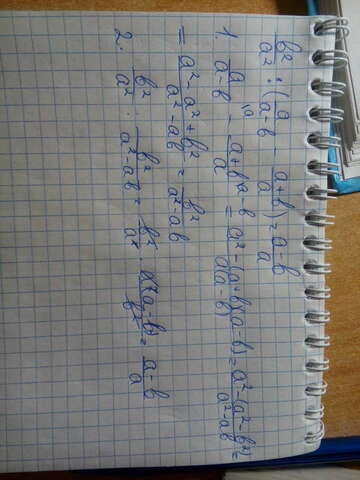 b²/a² : (a/(a-b) - (a+b)/a) = (a-b)/a
1. a/(a-b) \a - (a+b)/a \a-b = (a²-(a+b)(a-b))/(a(a-b)) = (a²-(a²-b²))/(a²-ab) =
= (a²-a²+b²)/(a²-ab) = b²/(a²-ab)
2. b²/a² : b²/(a²-ab) = b²/a² · a(a-b)/b² = (a-b)/a